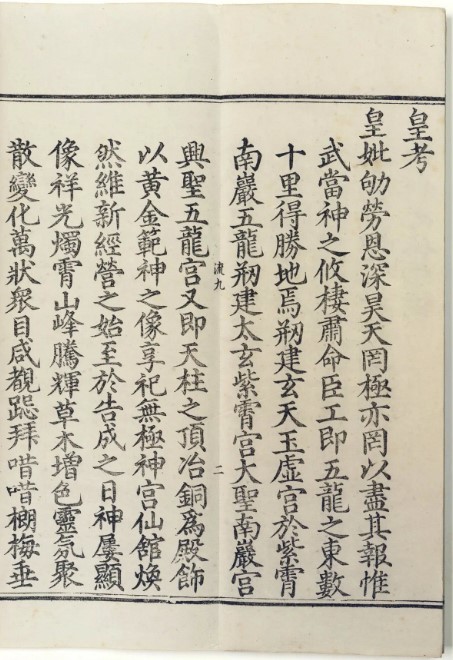 皇考
皇妣劬勞恩深昊天罔極亦罔以盡其報惟
武當神之攸棲肅命臣工即五龍之東數
十里得勝地焉剏建玄天玉虛宮於紫霄
南巖五龍剏建太玄紫霄宮大聖南巖宮
流九
二
興聖五龍宮又即天柱之頂冶銅爲殿飾
以黃金範神之像享祀無極神宮仙館煥
然維新經營之始至於告成之日神屢顯
像祥光燭霄山峰騰輝草木增色靈氛聚
散變化萬狀衆目咸覩跽拜唶唶榔梅垂